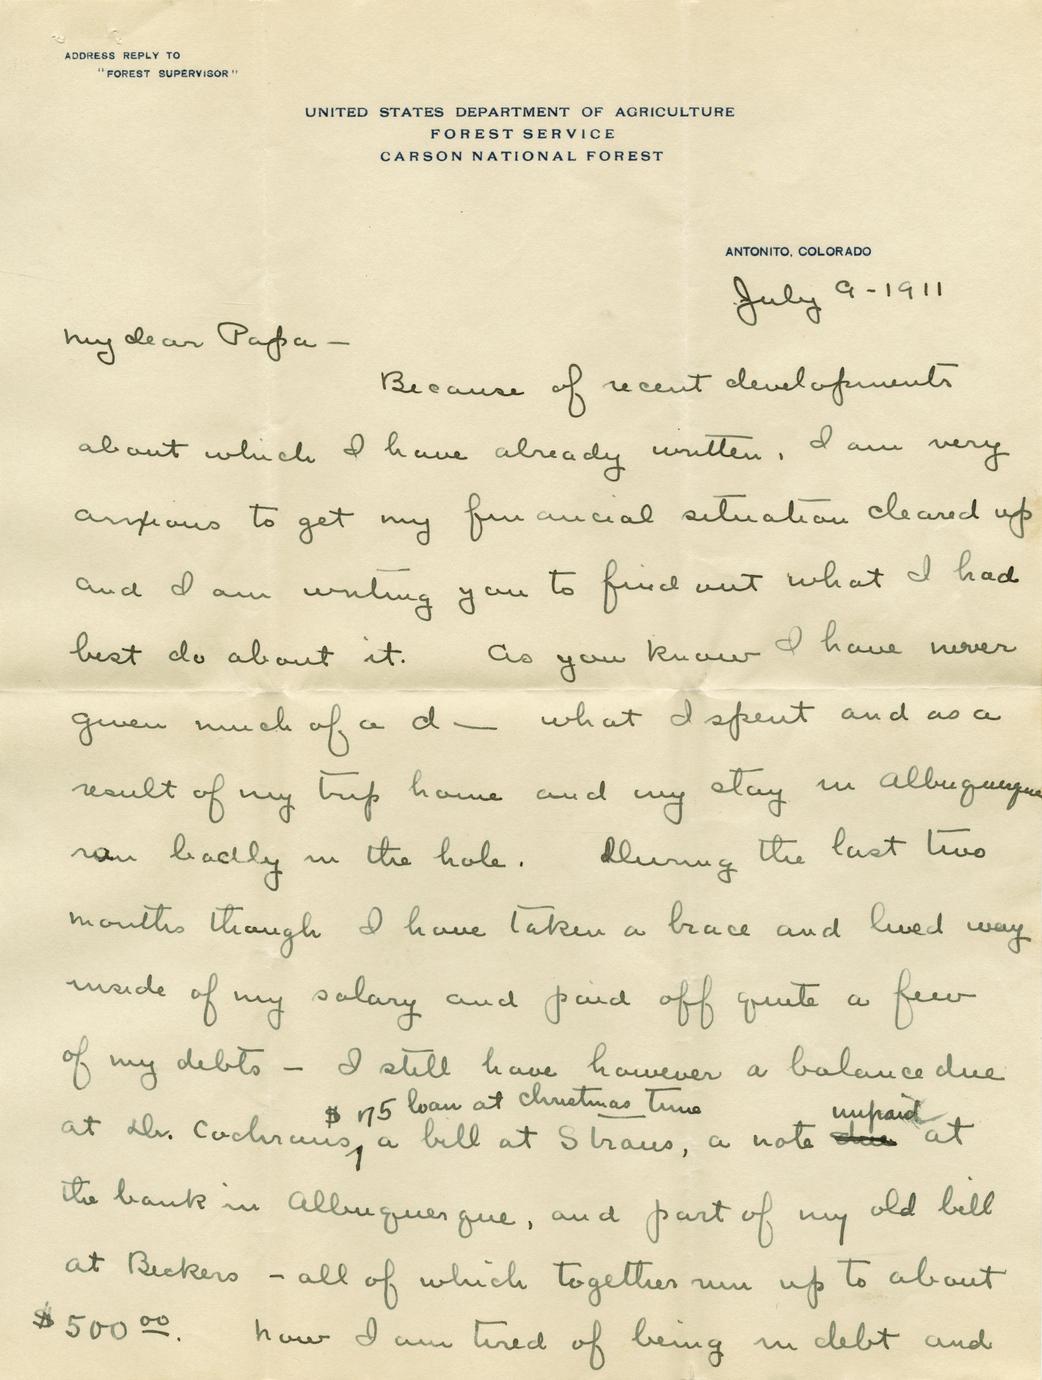 ADDRESS REPLY TO
"FOREST SUPERVISOR"
UNITED STATES DEPARTMENT OF AGRICULTURE
FOREST SERVICE
CARSON NATIONAL FOREST
ANTONITO, COLORADO
July 9-1911
My dear Papa —
Because of recent developments
about which I have already written, I am very
anxious to get my financial situation cleared up
and I am writing you to find out what I had
best do about it. As you know I have never
given much of a d — what I spent and as a
result of my trip home and my stay in Albuquerque
ran badly in the hole. During the last two
months though I have taken a brace and lived way
inside of my salary and paid off quite a few
of my debts — I still have however a balance due
$175 loan at Christmas time unpaid
at Dr. Cochrans, a bill at Straus, a note due at
the bank in Albuquerque, and part of my old bill
at Beckers - all of which together run up to about
$500 00. Now I am tired of being in debt and